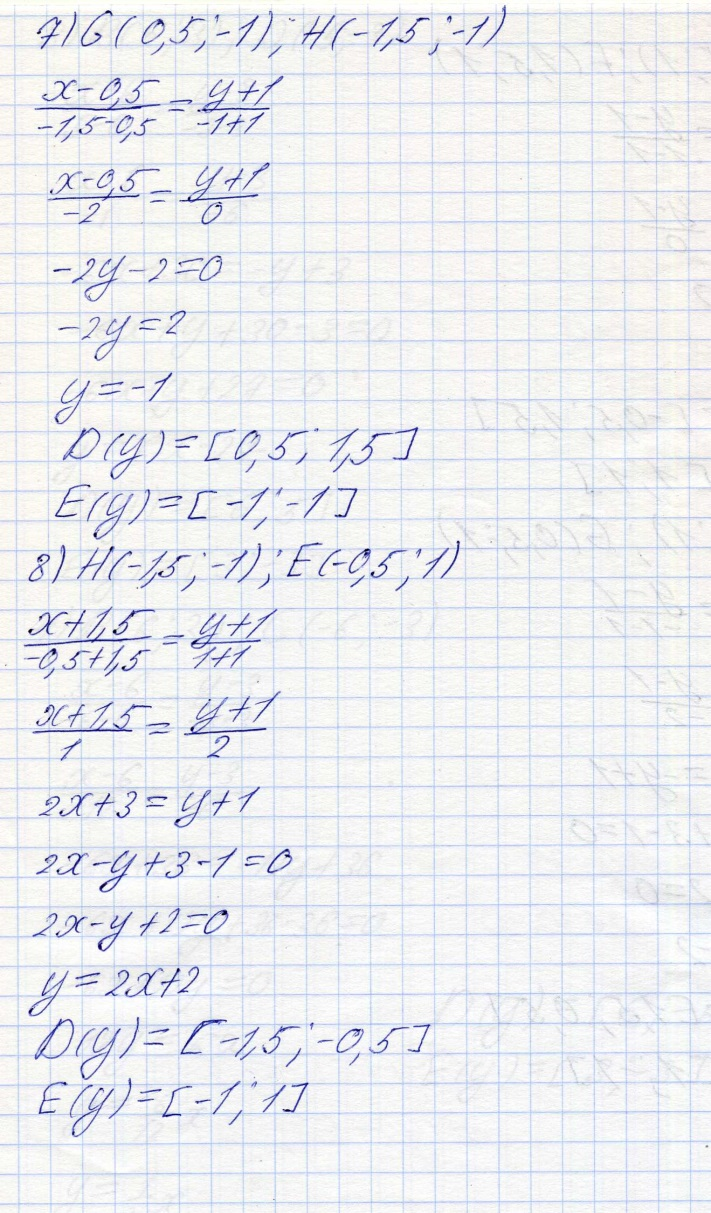 7) G(0,5; -1); H(-1,5; -1)
(x-0,5)/(-1,5-0,5) = (y+1)/(-1+1)
(x-0,5)/(-2) = (y+1)/0
-2y-2=0
-2y=2
y=-1
D(y)=[0,5; 1,5]
E(y)=[-1; -1]
8) H(-1,5; -1); E(-0,5; 1)
(x+1,5)/(-0,5+1,5) = (y+1)/(1+1)
(x+1,5)/1 = (y+1)/2
2x+3=y+1
2x-y+3-1=0
2x-y+2=0
y=2x+2
D(y)=[-1,5; -0,5]
E(y)=[-1; 1]